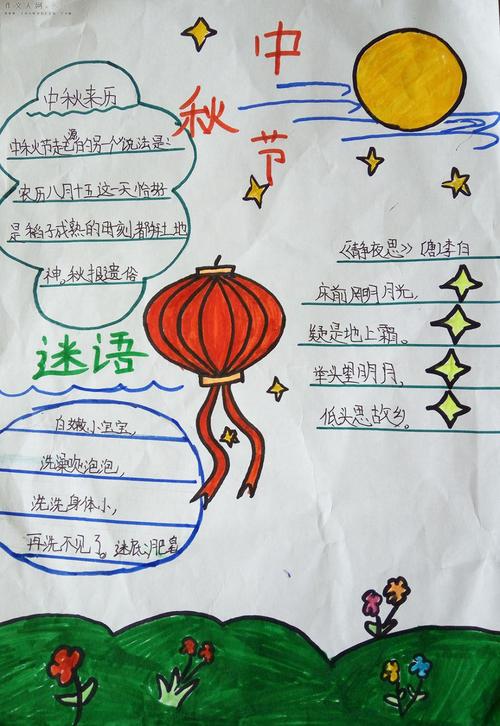 作文人网
中秋节
中秋来历
中秋节起源的另个说法是:
农历八月十五这一天恰好
是稻子成熟的时刻都拜土地
神。秋报遗俗
《静夜思》[唐]李白
床前明月光,
疑是地上霜。
举头望明月,
低头思故乡。
迷语
白嫩小宝宝,
洗澡吹泡泡,
洗洗身体小,
再洗不见了。迷底:肥皂